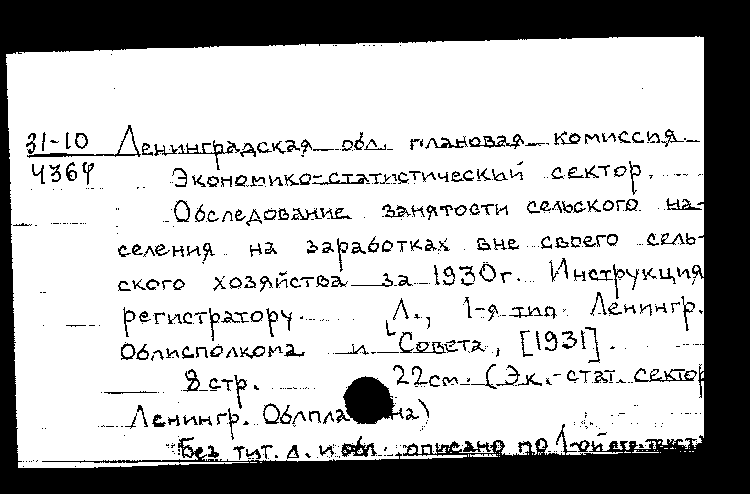 31-10 Ленинградская обл. плановая комиссия
4364 Экономико-статистический сектор.
Обследование занятости сельского на-
селения на заработках вне своего сель-
ского хозяйства за 1930г. Инструкция
регистратору. Л., 1-я тип. Ленингр.
Облисполкома и Совета, [1931].
8 стр. 22см. (Эк.-стат. сектор
Ленингр. Облпла на)
Без тит. л. и обл. описано по 1-ой стр. текста